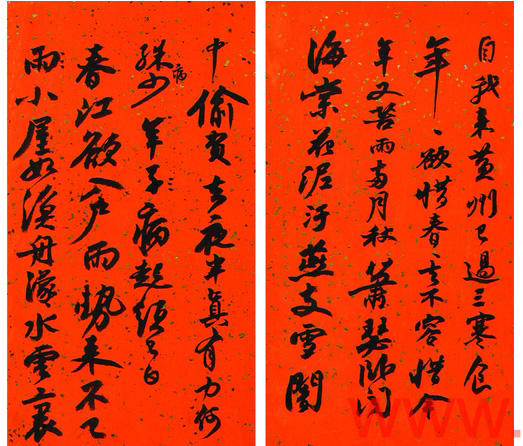 自我来黄州已過三寒食
年、欲惜春、去不容惜今
年又苦雨兩月秋蕭瑟卧聞
海棠花泥汙燕支雪闇
中偷負去夜半眞有力何
殊病少年子病起須已白
春江欲入户雨勢来不已
雨小屋如漁舟濛水雲裏
www.